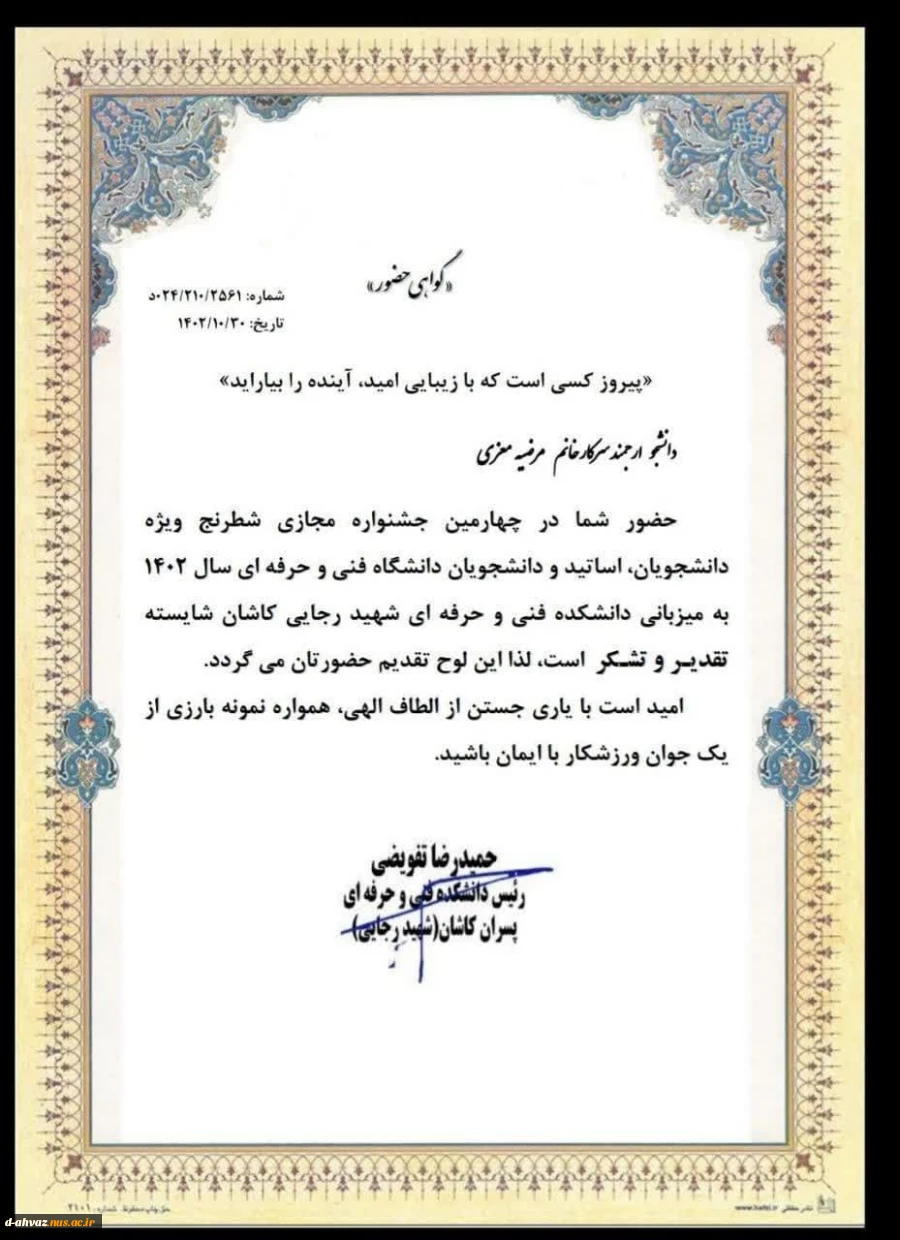 «گواهی حضور»
شماره: ۰۲۴/۲۱۰/۲۵۶۱د
تاریخ: ۱۴۰۲/۱۰/۳۰
«پیروز کسی است که با زیبایی امید، آینده را بیاراید»
دانشجو ارجمند سرکار خانم مرضیه معزی
حضور شما در چهارمین جشنواره مجازی شطرنج ویژه
دانشجویان، اساتید و دانشجویان دانشگاه فنی و حرفه ای سال ۱۴۰۲
به میزبانی دانشکده فنی و حرفه ای شهید رجایی کاشان شایسته
تقدیر و تشکر است، لذا این لوح تقدیم حضورتان می گردد.
امید است با یاری جستن از الطاف الهی، همواره نمونه بارزی از
یک جوان ورزشکار با ایمان باشید.
حمیدرضا تفویضی
رئیس دانشکده فنی و حرفه ای
پسران کاشان(شهید رجایی)
حق چاپ محفوظ شماره: ۲۱۰۱
d-ahvaz.nus.ac.ir